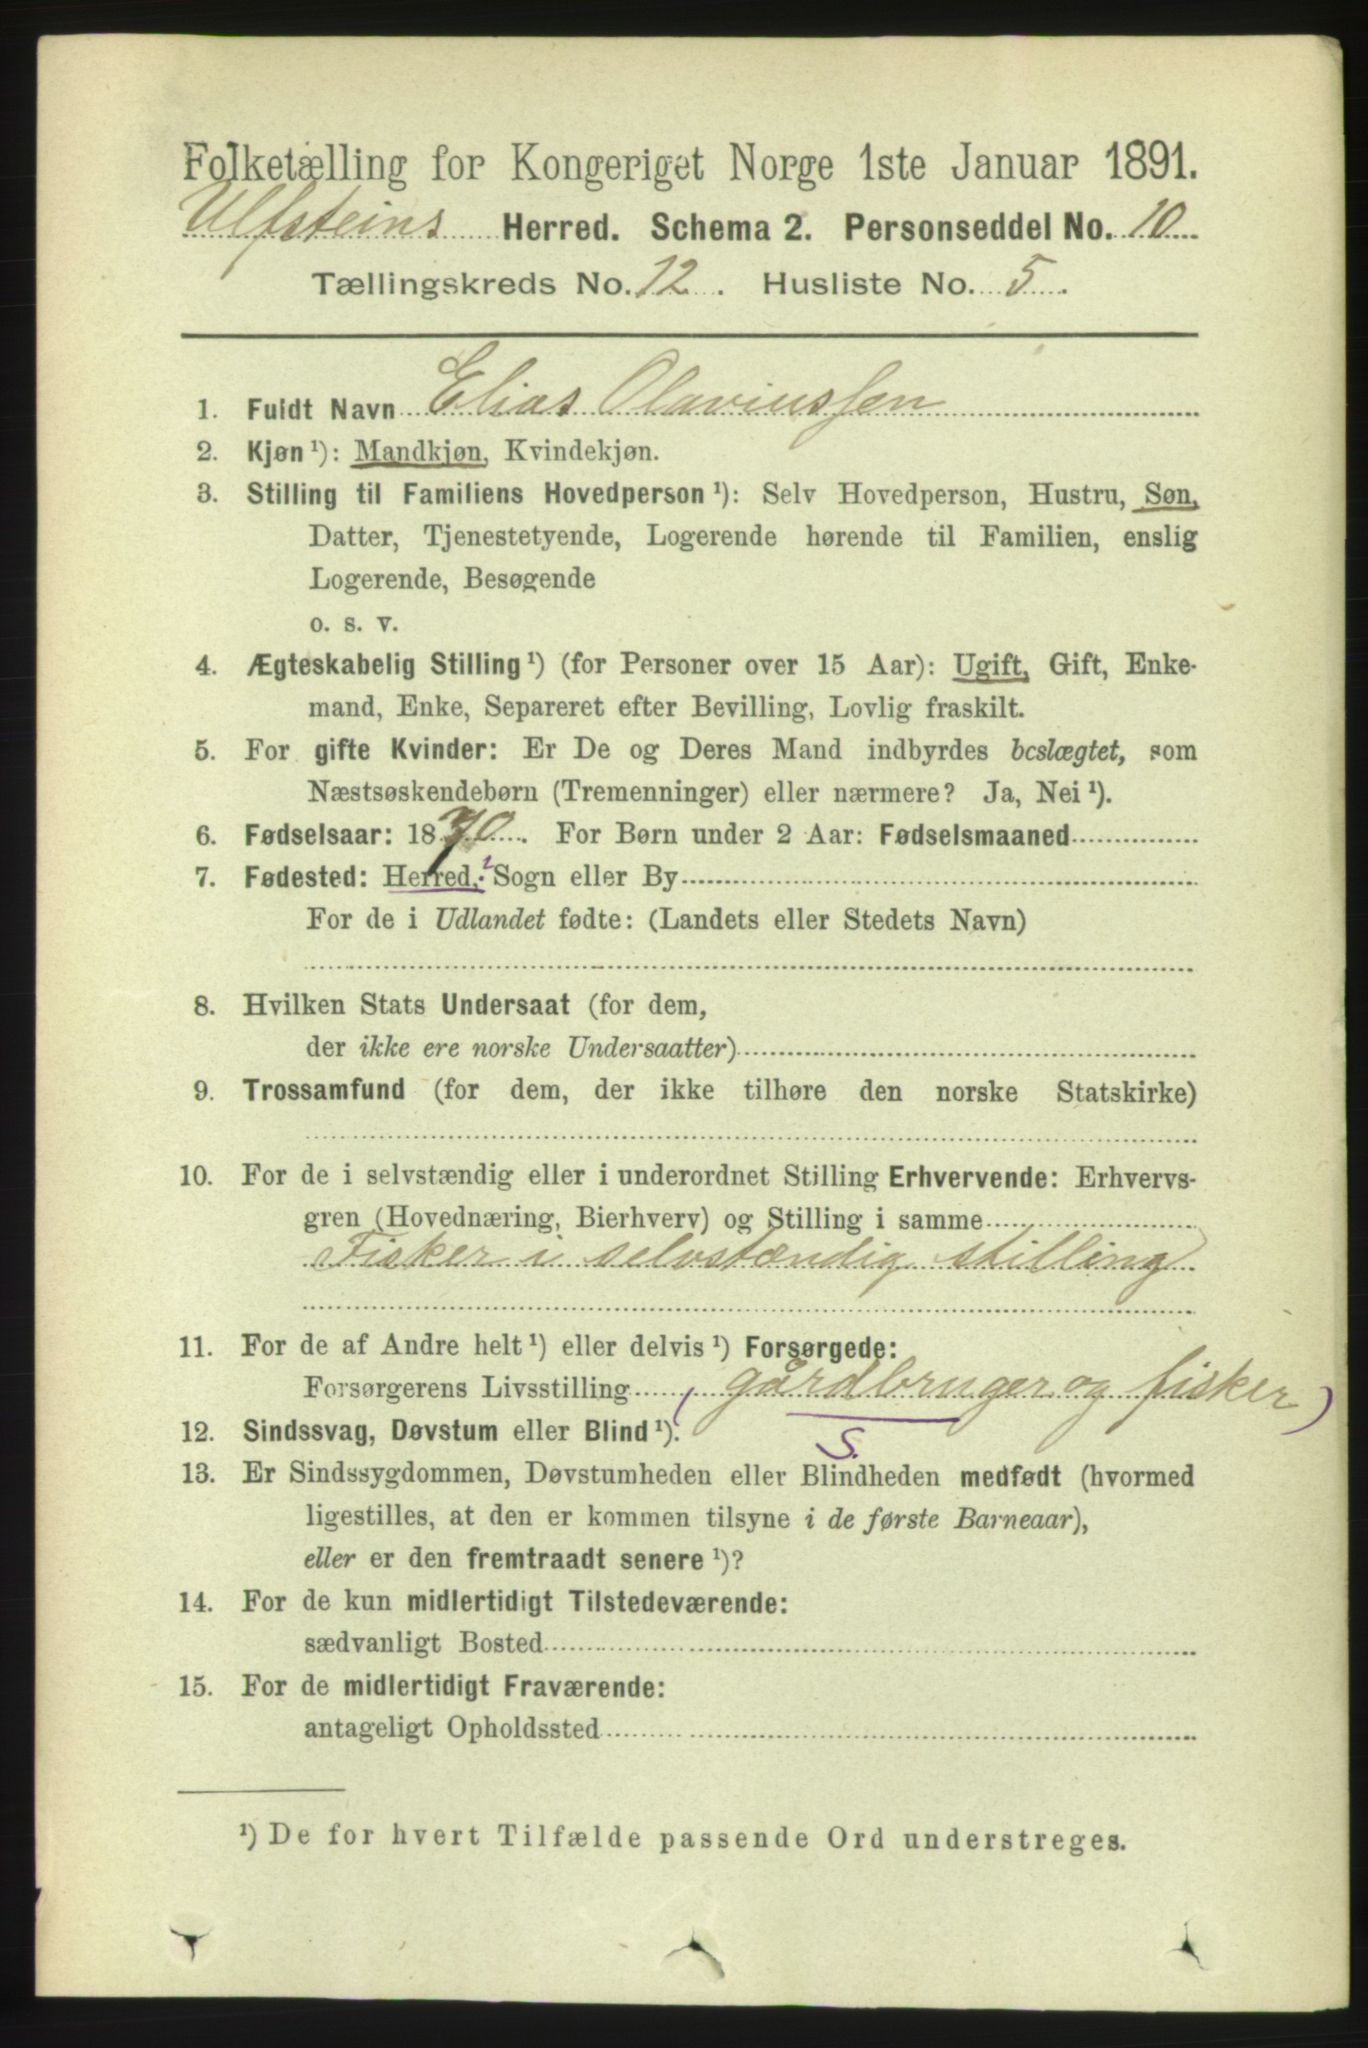 Folketælling for Kongeriget Norge 1ste Januar 1891.
Ulfsteins Herred. Schema 2. Personseddel No. 10
Tællingskreds No. 12. Husliste No. 5.
1. Fuldt Navn Elias Olaviussen
2. Kjøn ¹): Mandkjøn, Kvindekjøn.
3. Stilling til Familiens Hovedperson ¹): Selv Hovedperson, Hustru, Søn,
Datter, Tjenestetyende, Logerende hørende til Familien, enslig
Logerende, Besøgende
o. s. v.
4. Ægteskabelig Stilling ¹) (for Personer over 15 Aar): Ugift, Gift, Enke-
mand, Enke, Separeret efter Bevilling, Lovlig fraskilt.
5. For gifte Kvinder: Er De og Deres Mand indbyrdes beslægtet, som
Næstsøskendebørn (Tremenninger) eller nærmere? Ja, Nei ¹).
6. Fødselsaar: 1870. For Børn under 2 Aar: Fødselsmaaned
7. Fødested: Herred, Sogn eller By
For de i Udlandet fødte: (Landets eller Stedets Navn)
8. Hvilken Stats Undersaat (for dem,
der ikke ere norske Undersaatter)
9. Trossamfund (for dem, der ikke tilhøre den norske Statskirke)
10. For de i selvstændig eller i underordnet Stilling Erhvervende: Erhvervs-
gren (Hovednæring, Bierhverv) og Stilling i samme
Fisker i selvstændig stilling
11. For de af Andre helt ¹) eller delvis ¹) Forsørgede:
Forsørgerens Livsstilling (gårdbruger og fisker)
12. Sindssvag, Døvstum eller Blind ¹). S.
13. Er Sindssygdommen, Døvstumheden eller Blindheden medfødt (hvormed
ligestilles, at den er kommen tilsyne i de første Barneaar),
eller er den fremtraadt senere ¹)?
14. For de kun midlertidigt Tilstedeværende:
sædvanligt Bosted
15. For de midlertidigt Fraværende:
antageligt Opholdssted
¹) De for hvert Tilfælde passende Ord understreges.